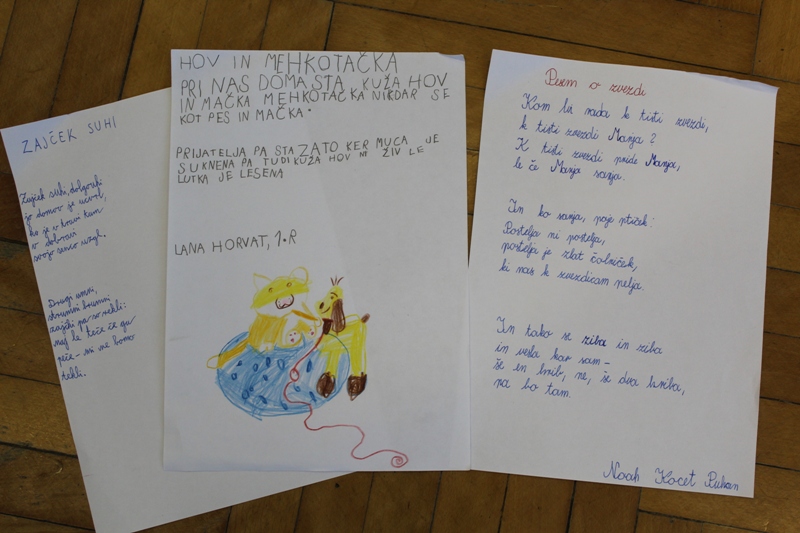 ZAJČEK SUHI
Zajček suhi, dolgouhi
je domov je ucvrl,
ko je v travi tam
v dobravi
svojo senco uzrl.
Drugi urni,
skrumni
zajčki pa so rekli:
naj le teče če gu
peče – mi ne bomo
tekli.
HOV IN MEHKOTAČKA
PRI NAS DOMA STA KUŽA HOV
IN MAČKA MEHKOTAČKA NIKDAR SE
KOT PES IN MAČKA.
PRIJATELJA PA STA ZATO KER MUCA JE
SUKNENA PA TUDI KUŽA HOV NI ŽIV LE
LUTKA JE LESENA
LANA HORVAT, 1.R
Pesem o zvezdi
Kam bi rada k tisti zvezdi,
k tisti zvezdi Manja?
K tisti zvezdi pride Manja,
le če Manja sanja.
In ko sanja, poje ptiček:
Postelja ni postelja,
postelja je zlat čolniček,
ki nas k zvezdicam pelja.
In tako se ziba in ziba
in vesla kar sam –
še en hrib, ne, še dva hriba,
pa bo tam.
Noah Kocet Puhan